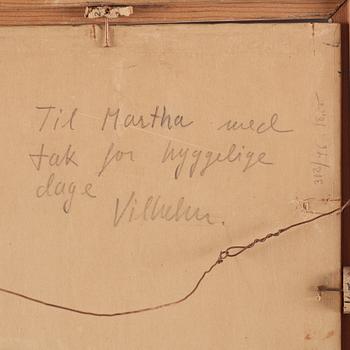 Til Martha med
tak for hyggelige
dage
Vilhelm.